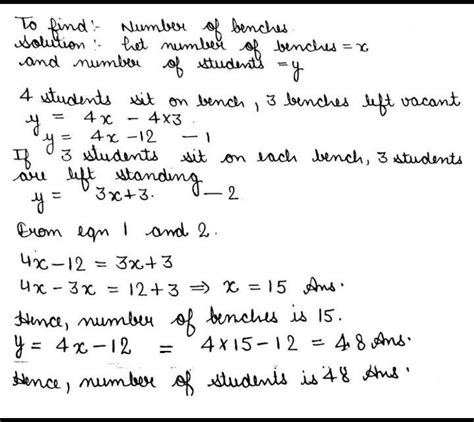 To find:- Number of benches.
Solution:- Let number of benches = x
and number of students = y
4 students sit on bench, 3 benches left vacant
y = 4x - 4×3
y = 4x - 12 — 1
If 3 students sit on each bench, 3 students
are left standing
y = 3x+3. — 2
From eqn 1 and 2.
4x - 12 = 3x + 3
4x - 3x = 12 + 3 ⇒ x = 15 Ans.
Hence, number of benches is 15.
y = 4x - 12 = 4×15 - 12 = 48 Ans.
Hence, number of students is 48 Ans.